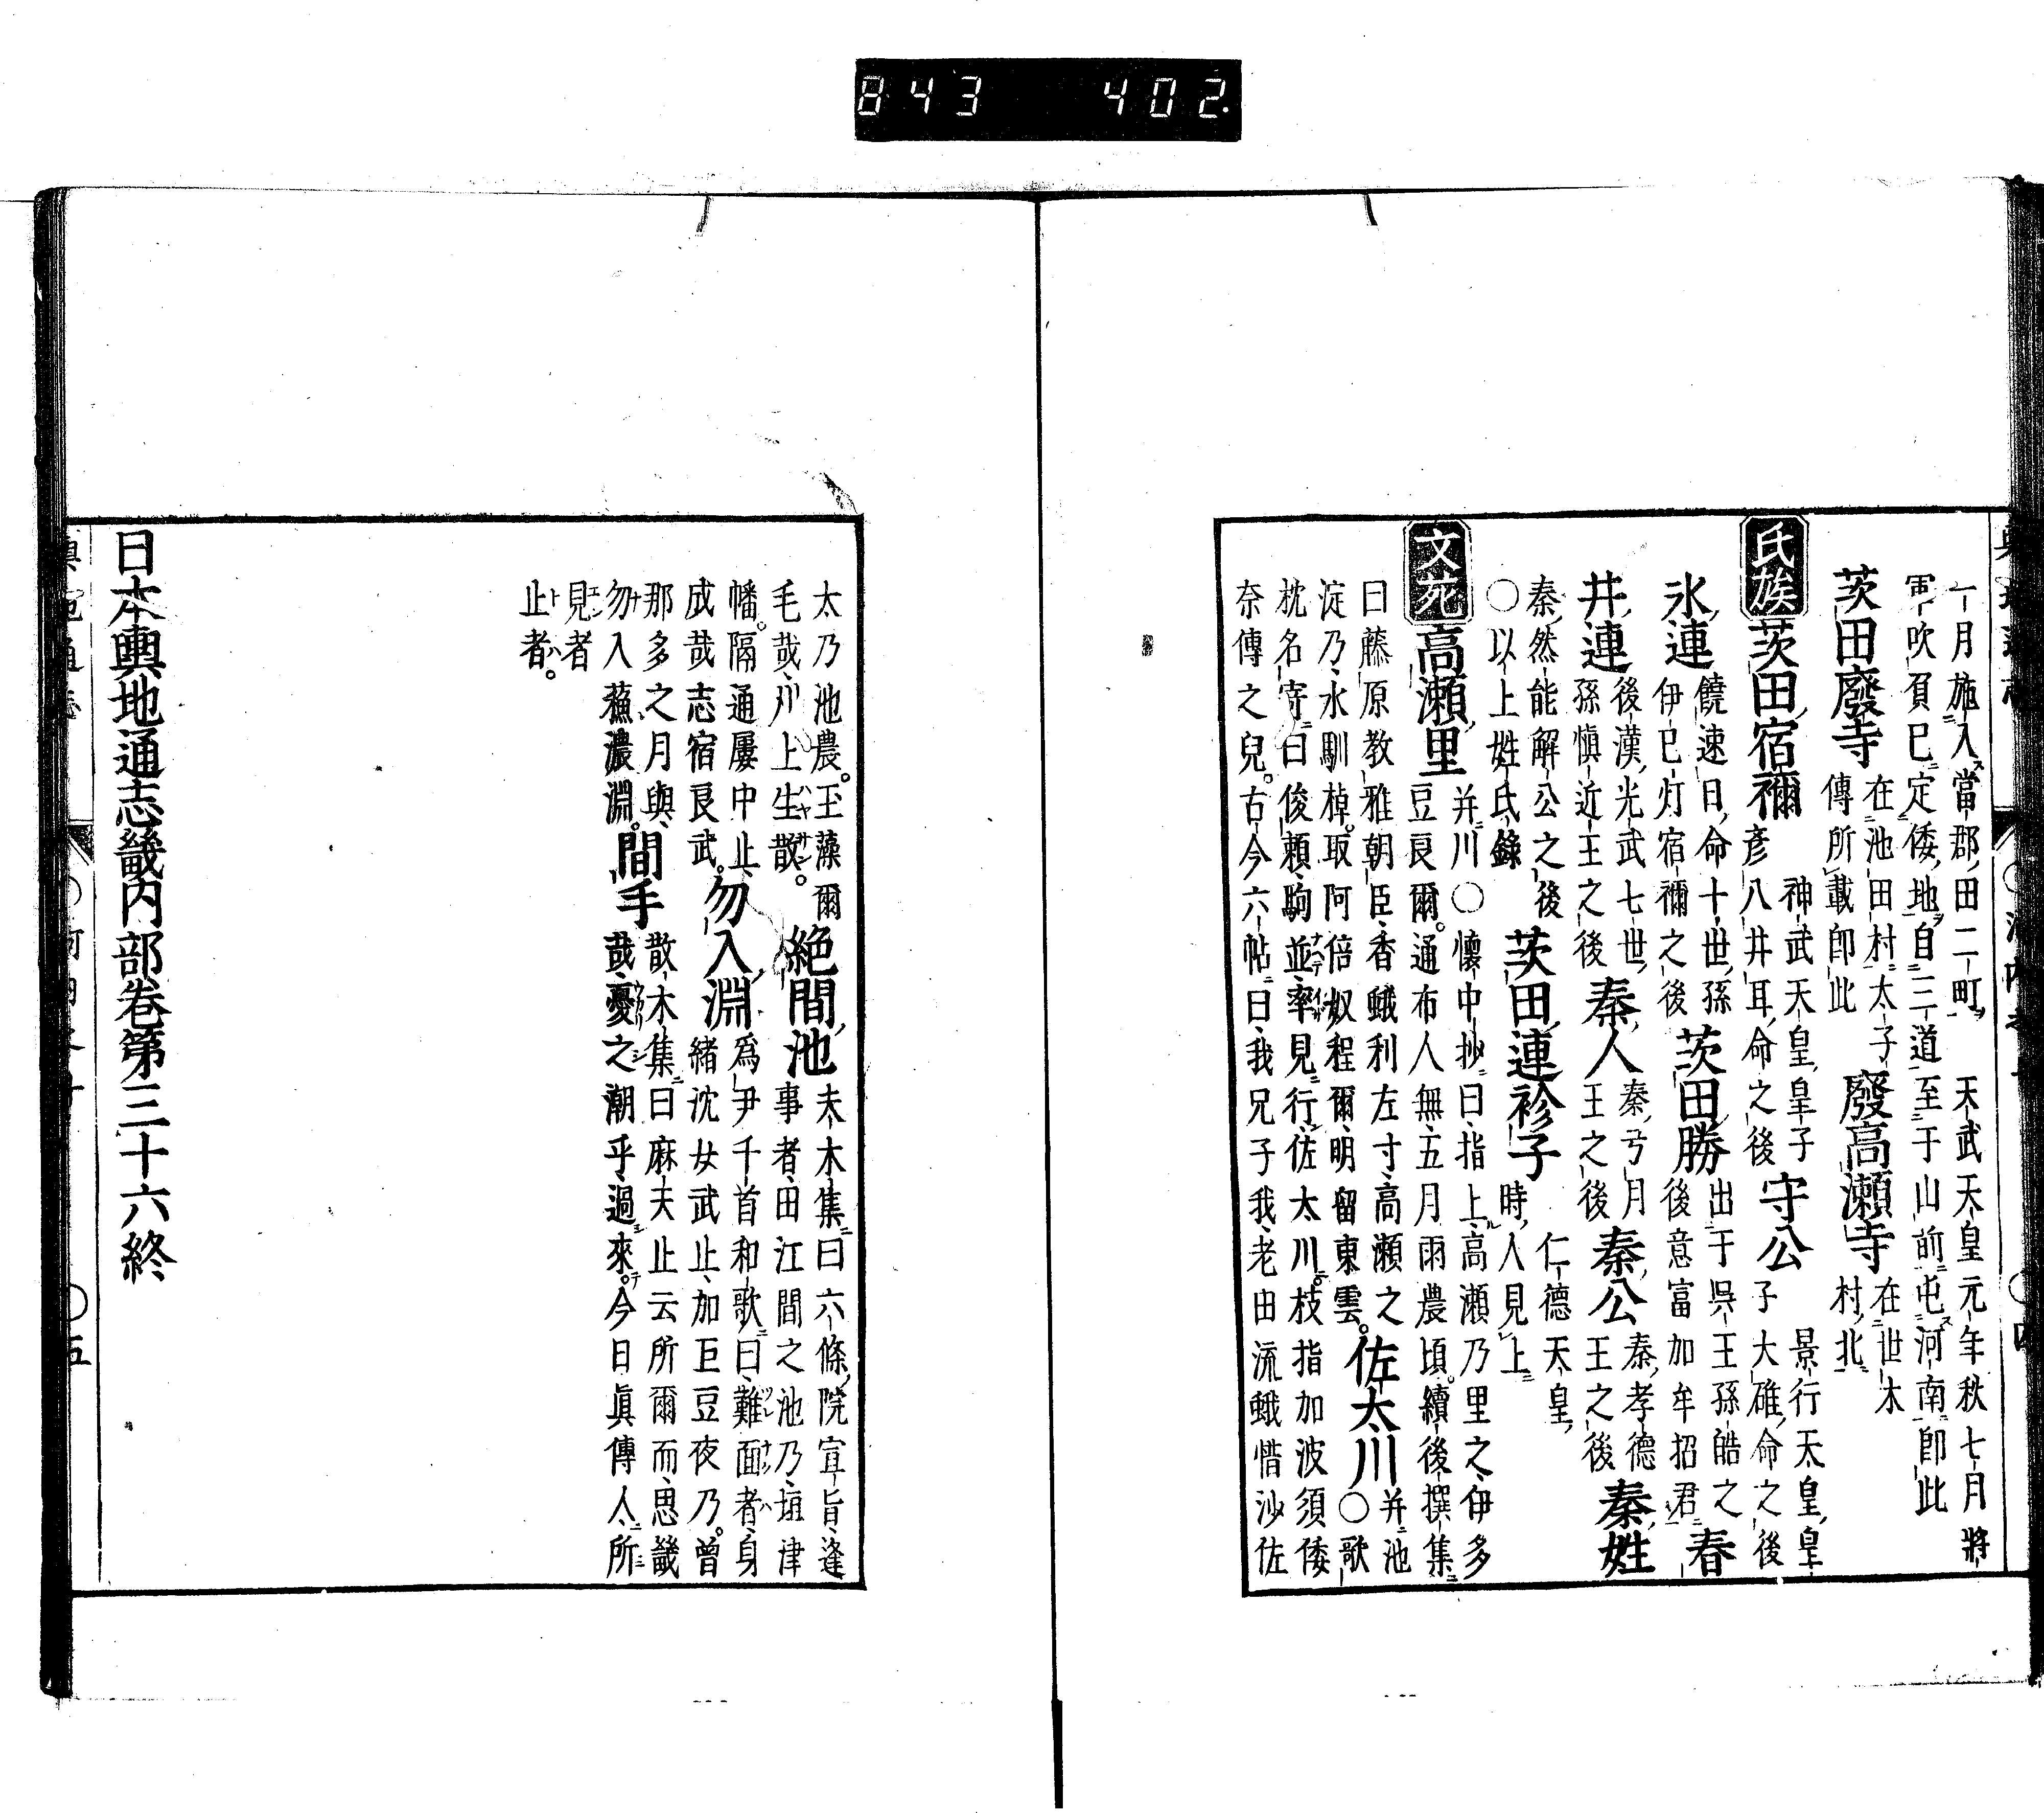 843 402
一月施入當郡田二町天武天皇元年秋七月將
軍吹負已定倭地自三道至于山前屯河南卽此
茨田廢寺在池田村太子傳所載卽此廢高瀨寺在世木村北
氏族茨田宿禰神武天皇皇子彥八井耳命之後守公景行天皇皇子大碓命之後
氷連饒速日命十世孫伊己灯宿禰之後茨田勝出于吳王孫皓之後意富加牟招君春
井連後漢光武七世孫愼近王之後秦人秦弓月王之後秦公秦孝德王之後秦姓
秦然能解公之後○以上姓氏錄茨田連衫子仁德天皇時人見上
文苑高瀨里幷川○懷中抄曰指上高瀨乃里之伊多豆良爾通布人無五月雨農頃續後撰集
曰藤原教雅朝臣香蛾利左寸高瀨之
淀乃水馴棹取阿倍奴程爾明留東雲佐太川幷池○歌
枕名寄曰俊賴駒並率見行佐太川枝指加波須倭
奈傳之兒古今六帖曰我兄子我老由流蛾惜沙佐
太乃池農玉藻爾絕間池夫木集曰六條院宣旨逢
毛哉川上生散事者田江間之池乃埴津
幡隔通屢中止勿入淵爲尹千首和歌曰難面者身
成哉志宿良武緖沈女武止加巨豆夜乃曾
那多之月與間手散木集曰麻夫止云所爾而思畿
勿入蘓濃淵哉憂之潮乎過來今日眞傳人所
見者
止者
日本輿地通志畿內部卷第三十六終
五